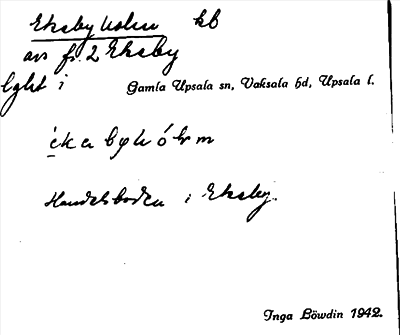 Eksby Holm kb
avs fr. 2 Eksby
lght i
Gamla Upsala sn, Vaksala hd, Upsala l.
Handelsboden i Eksby.
Inga Löwdin 1942.